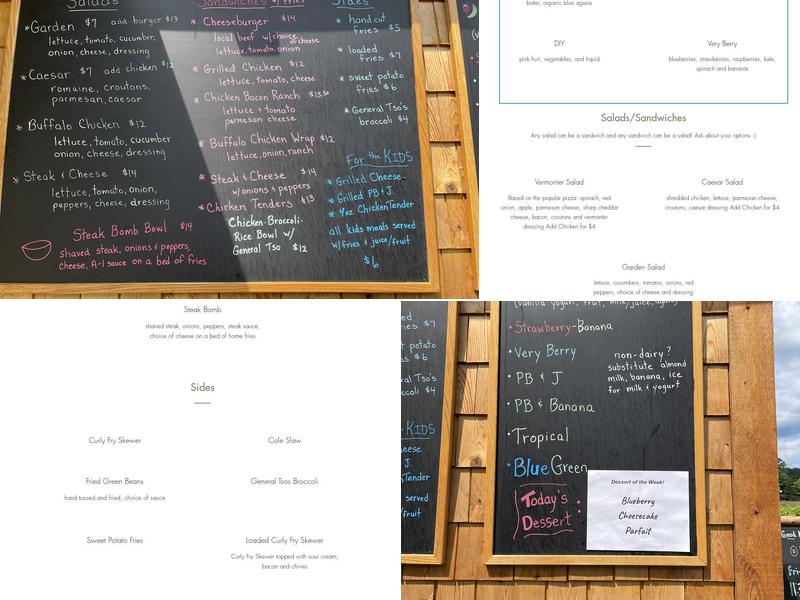 Salads
*Garden $7 add burger $13
lettuce, tomato, cucumber,
onion, cheese, dressing
*Caesar $7 add chicken $12
romaine, croutons,
parmesan, caesar
* Buffalo Chicken $12
lettuce, tomato, cucumber
onion, cheese, dressing
* Steak & Cheese $14
lettuce, tomato, onion,
peppers, cheese, dressing
Steak Bomb Bowl $14
shaved steak, onions & peppers,
cheese, A-1 sauce on a bed of fries
Sandwiches w/ fries
* Cheeseburger $14
local beef w/choice
of cheese
lettuce, tomato, onion
* Grilled Chicken $12
lettuce, tomato, cheese
* Chicken Bacon Ranch $13.50
lettuce & tomato
parmesan cheese
* Buffalo Chicken Wrap $12
lettuce, onion, ranch
* Steak & Cheese $14
w/onions & peppers
* Chicken Tenders $13
Chicken-Broccoli-
Rice Bowl w/
General Tso $12
Sides
* hand cut
fries $5
* loaded
fries $7
* sweet potato
fries $6
* General Tso's
broccoli $4
For the KIDS
* Grilled Cheese
* Grilled PB & J
* 4oz Chicken Tender
all kids meals served
w/fries & juice/fruit
$6
butter, organic blue agave
DIY
pick fruit, vegetables, and liquid
Very Berry
blueberries, strawberries, raspberries, kale,
spinach and bananas
Salads/Sandwiches
Any salad can be a sandwich and any sandwich can be a salad! Ask about your options :)
Vermonter Salad
Based on the popular pizza: spinach, red
onion, apple, parmesan cheese, sharp cheddar
cheese, bacon, croutons and vermonter
dressing Add Chicken for $4
Caesar Salad
shredded chicken, lettuce, parmesan cheese,
croutons, caesar dressing Add Chicken for $4
Garden Salad
lettuce, cucumbers, tomatoes, onions, red
peppers, choice of cheese and dressing
Steak Bomb
shaved steak, onions, peppers, steak sauce,
choice of cheese on a bed of home fries
Sides
Curly Fry Skewer
Cole Slaw
Fried Green Beans
hand tossed and fried, choice of sauce
General Tsos Broccoli
Sweet Potato Fries
Loaded Curly Fry Skewer
Curly Fry Skewer topped with sour cream,
bacon and chives
ries $7
potato
$6
al Tso's
coli $4
KIDS
heese
& J
Tender
served
/fruit
(vanilla yogurt, fruit, milk/juice, agave)
• Strawberry-Banana
• Very Berry
• PB & J
• PB & Banana
• Tropical
• Blue Green
non-dairy?
substitute almond
milk, banana, ice
for milk & yogurt
Today's
Dessert :
Dessert of the Week!
Blueberry
Cheesecake
Parfait